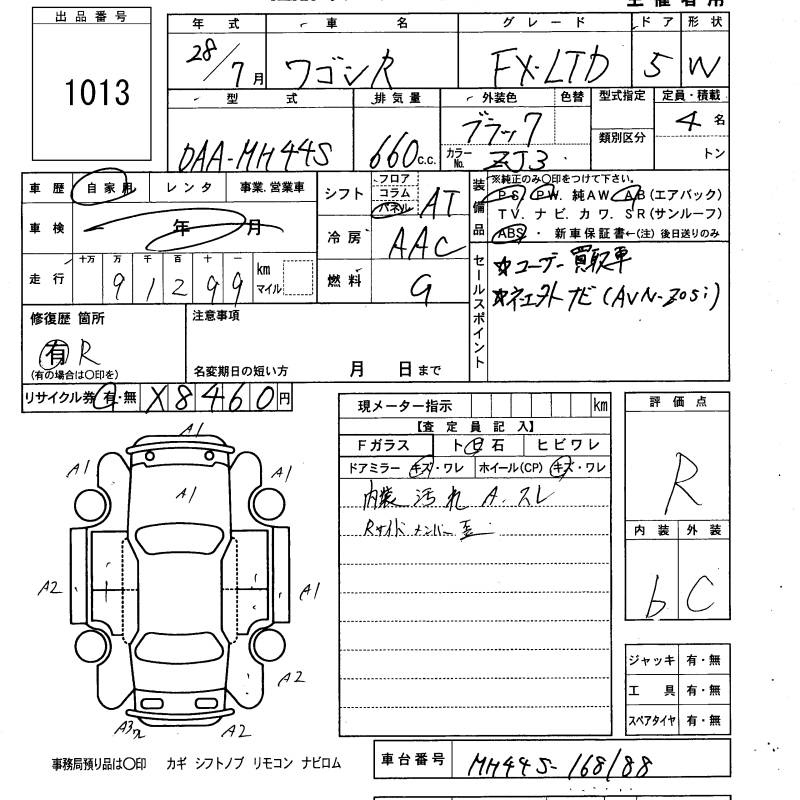 出品番号
1013
年式 車名 グレード ドア 形状
28/7月 ワゴンR FX-LTD 5 W
型式 排気量 外装色 色替 型式指定 定員・積載
DAA-MH44S 660c.c. ブラック 類別区分 4名
カラーNo. ZJ3 トン
車歴 自家用 レンタ 事業.営業車
車検 年 月
走行 十万 万 千 百 十 一 km マイル
91299
シフト フロア コラム パネル AT
冷房 AAC
燃料 G
装備品
※純正のみ〇印をつけて下さい。
PS. PW. 純AW. AB(エアバック)
TV. ナビ. カワ. SR(サンルーフ)
ABS・ 新車保証書←(注)後日送りのみ
セールスポイント
☆ユーザー買取車
☆ネエクト ナビ(AVN-Z05i)
修復歴 箇所
有 R
(有の場合は〇印を)
注意事項
名変期日の短い方 月 日まで
リサイクル券 有・無 ¥8460円
現メーター指示 km
【査定員記入】
Fガラス ト日石 ヒビワレ
ドアミラー キズ・ワレ ホイール(CP) キズ・ワレ
内装 汚れ A.スレ
Rサイドメンバー 歪
評価点
R
内装 外装
b C
ジャッキ 有・無
工具 有・無
スペアタイヤ 有・無
A1
A1
A1
A1
A2
A1
A2
A3
A2
事務局預り品は〇印 カギ シフトノブ リモコン ナビロム
車台番号 MH44S-168188